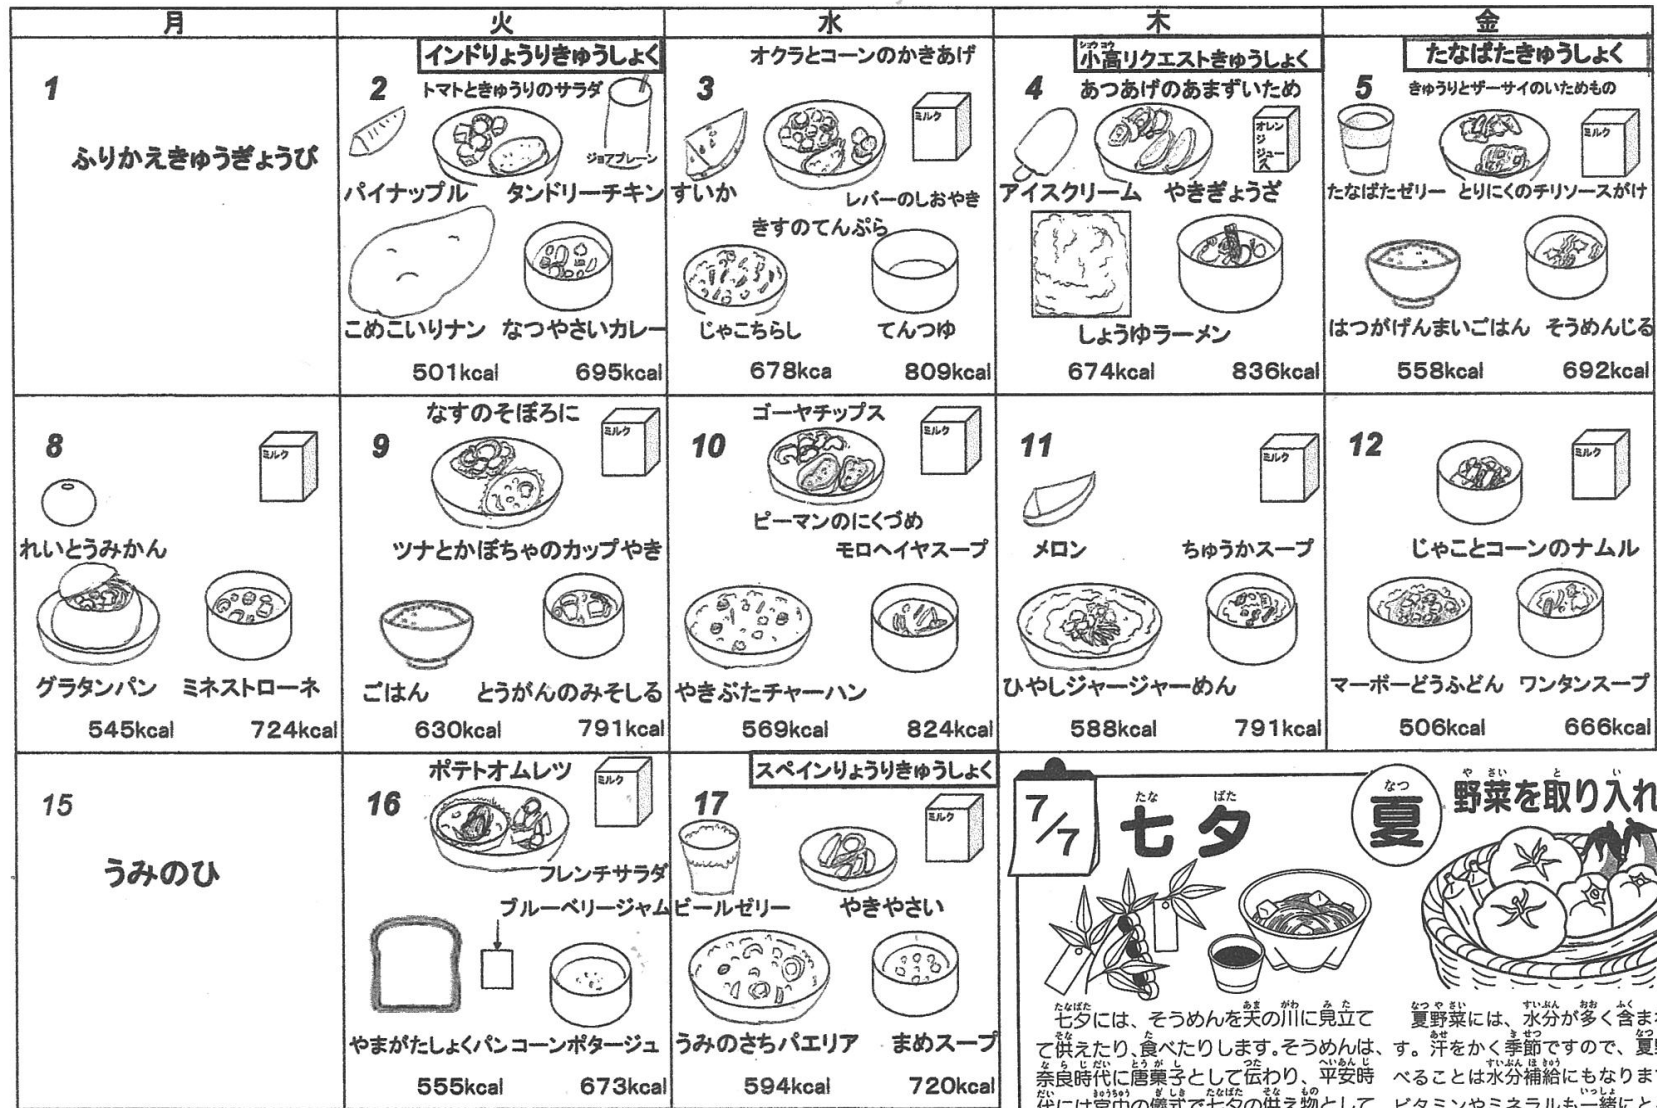 月 火 水 木 金
1
ふりかえきゅうぎょうび
インドりょうりきゅうしょく
2
トマトときゅうりのサラダ
ジョアプレーン
パイナップル タンドリーチキン
こめこいりナン なつやさいカレー
501kcal 695kcal
オクラとコーンのかきあげ
3
ミルク
すいか
レバーのしおやき
きすのてんぷら
じゃこちらし てんつゆ
678kca 809kcal
小高リクエストきゅうしょく
ショウコウ
4
あつあげのあまずいため
オレンジジュース
アイスクリーム やきぎょうざ
しょうゆラーメン
674kcal 836kcal
たなばたきゅうしょく
5
きゅうりとザーサイのいためもの
ミルク
たなばたゼリー とりにくのチリソースがけ
はつがげんまいごはん そうめんじる
558kcal 692kcal
8
ミルク
れいとうみかん
グラタンパン ミネストローネ
545kcal 724kcal
なすのそぼろに
9
ミルク
ツナとかぼちゃのカップやき
ごはん とうがんのみそしる
630kcal 791kcal
ゴーヤチップス
10
ミルク
ピーマンのにくづめ
モロヘイヤスープ
やきぶたチャーハン
569kcal 824kcal
11
ミルク
メロン ちゅうかスープ
ひやしジャージャーめん
588kcal 791kcal
12
ミルク
じゃことコーンのナムル
マーボーどうふどん ワンタンスープ
506kcal 666kcal
15
うみのひ
ポテトオムレツ
16
ミルク
フレンチサラダ
ブルーベリージャム
やまがたしょくパン コーンポタージュ
555kcal 673kcal
スペインりょうりきゅうしょく
17
ミルク
ビールゼリー やきやさい
うみのさちパエリア まめスープ
594kcal 720kcal
7/7
たな ばた
七夕
たなばた あま がわ み た
七夕には、そうめんを天の川に見立て
そな た
て供えたり、食べたりします。そうめんは、
な ら じ だい とう が し つた へいあん じ
奈良時代に唐菓子として伝わり、平安時
だい きゅうちゅう ぎ しき たなばた そな もの
代には宮中の儀式で七夕の供え物として
なつ
夏
や さい と い
野菜を取り入れ
なつ や さい すいぶん おお ふく
夏野菜には、水分が多く含まれ
あせ き せつ なつ
す。汗をかく季節ですので、夏野
すいぶん ほ きゅう
べることは水分補給にもなります
いっしょ
ビタミンやミネラルも一緒にと